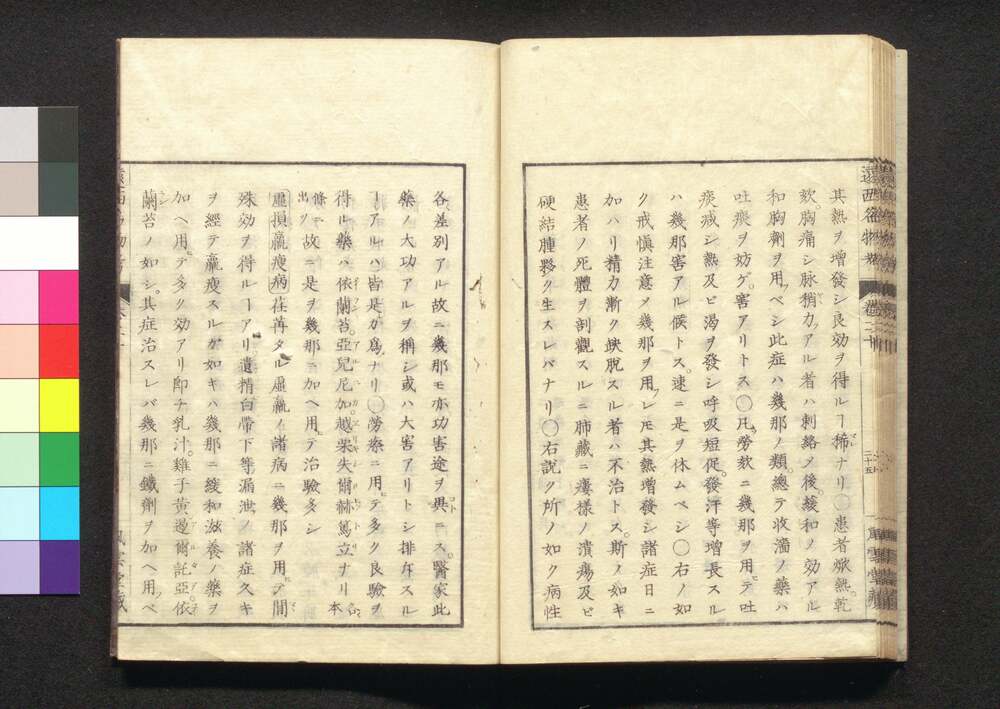 其熱ヲ増發シ良効ヲ得ルヿ稀ナリ○患者焮熱乾
欬胸痛シ脉稍力アル者ハ刺絡メ後緩和ノ効アル
和胸劑ヲ用ベシ此症ハ幾那ノ類總テ收濇ノ藥ハ
吐痰ヲ妨ゲ害アリトス○凡勞欬ニ幾那ヲ用テ吐
痰減シ熱及ビ渇ヲ發シ呼吸短促發汗等増長スル
ハ幾那害アル候トス速ニ是ヲ休ムベシ○右ノ如
ク戒愼注意メ幾那ヲ用レ𪜈其熱増發シ諸症日ニ
加ハリ精力漸ク缺脱スル者ハ不治トス斯ノ如キ
患者ノ死體ヲ剖觀スルニ肺藏ニ瘻樣ノ潰瘍及ビ
硬結腫夥ク生スレバナリ○右説ク所ノ如ク病性
遠西名物考
卷二十
二十五
各差別アル故ニ幾那モ亦功害途ヲ異ニス醫家此
藥ノ大功アルヲ稱シ或ハ大害アリトシ排斥スル
ヿアルハ皆是ガ爲ナリ○勞瘵ニ用テ多ク良驗ヲ
得ル藥ハ依蘭苔亞兒尼加越栗失爾赫篤立ナリ本
條ニ出ツ故ニ是ヲ幾那ニ加ヘ用テ治驗多シ
虚損羸瘦病荏苒タル虚羸ノ諸病ニ幾那ヲ用テ間
殊効ヲ得ルヿアリ遺精白帶下等漏泄ノ諸症久キ
ヲ經テ羸瘦スルガ如キハ幾那ニ緩和滋養ノ藥ヲ
加ヘ用テ多ク効アリ即チ乳汁雞子黄邊爾託亞依
蘭苔ノ如シ其症治スレバ幾那ニ鐵劑ヲ加ヘ用ベ